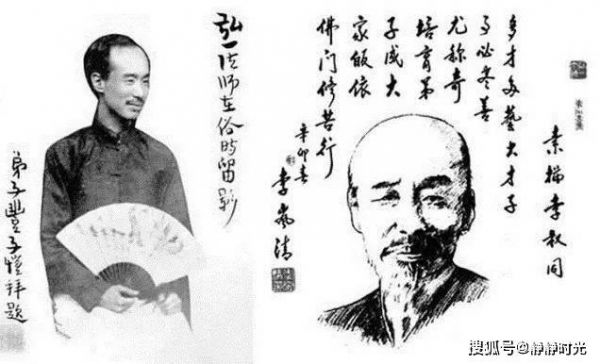 弘一法师在俗時留影
弟子豐子愷拜題
素描李叔同
多才多藝大才子
事必尽善
尤称奇
培育弟
子成大
家皈依
佛门修苦行
辛卯春
李嵐清
搜狐号@静静时光